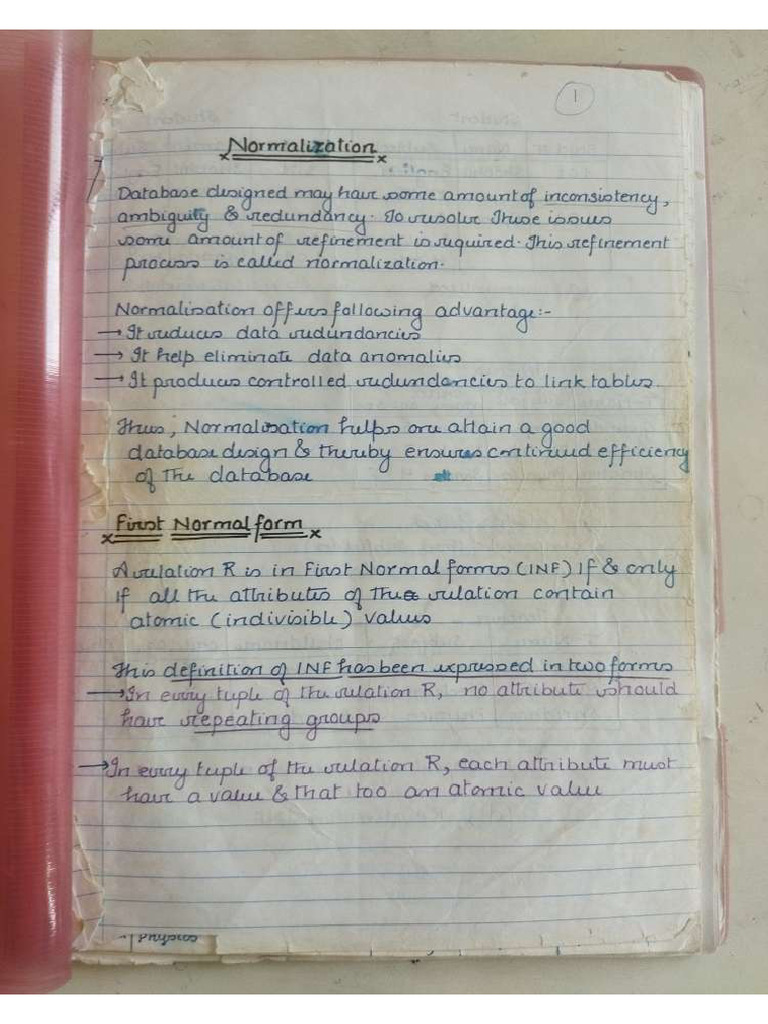 1
Normalization
Database designed may have some amount of inconsistency,
ambiguity & redundancy. To resolve these issues
some amount of refinement is required. This refinement
process is called normalization.
Normalisation offers following advantage:-
→ It reduces data redundancies
→ It help eliminate data anomalies
→ It produces controlled redundancies to link tables.
Thus, Normalisation helps one attain a good
database design & thereby ensures continued efficiency
of the database
First Normal form
A relation R is in First Normal forms (1NF) If & only
if all the attributes of the relation contain
atomic (indivisible) values
This definition of 1NF has been expressed in two forms
→ In every tuple of the relation R, no attribute should
have repeating groups
→ In every tuple of the relation R, each attribute must
have a value & that too an atomic value